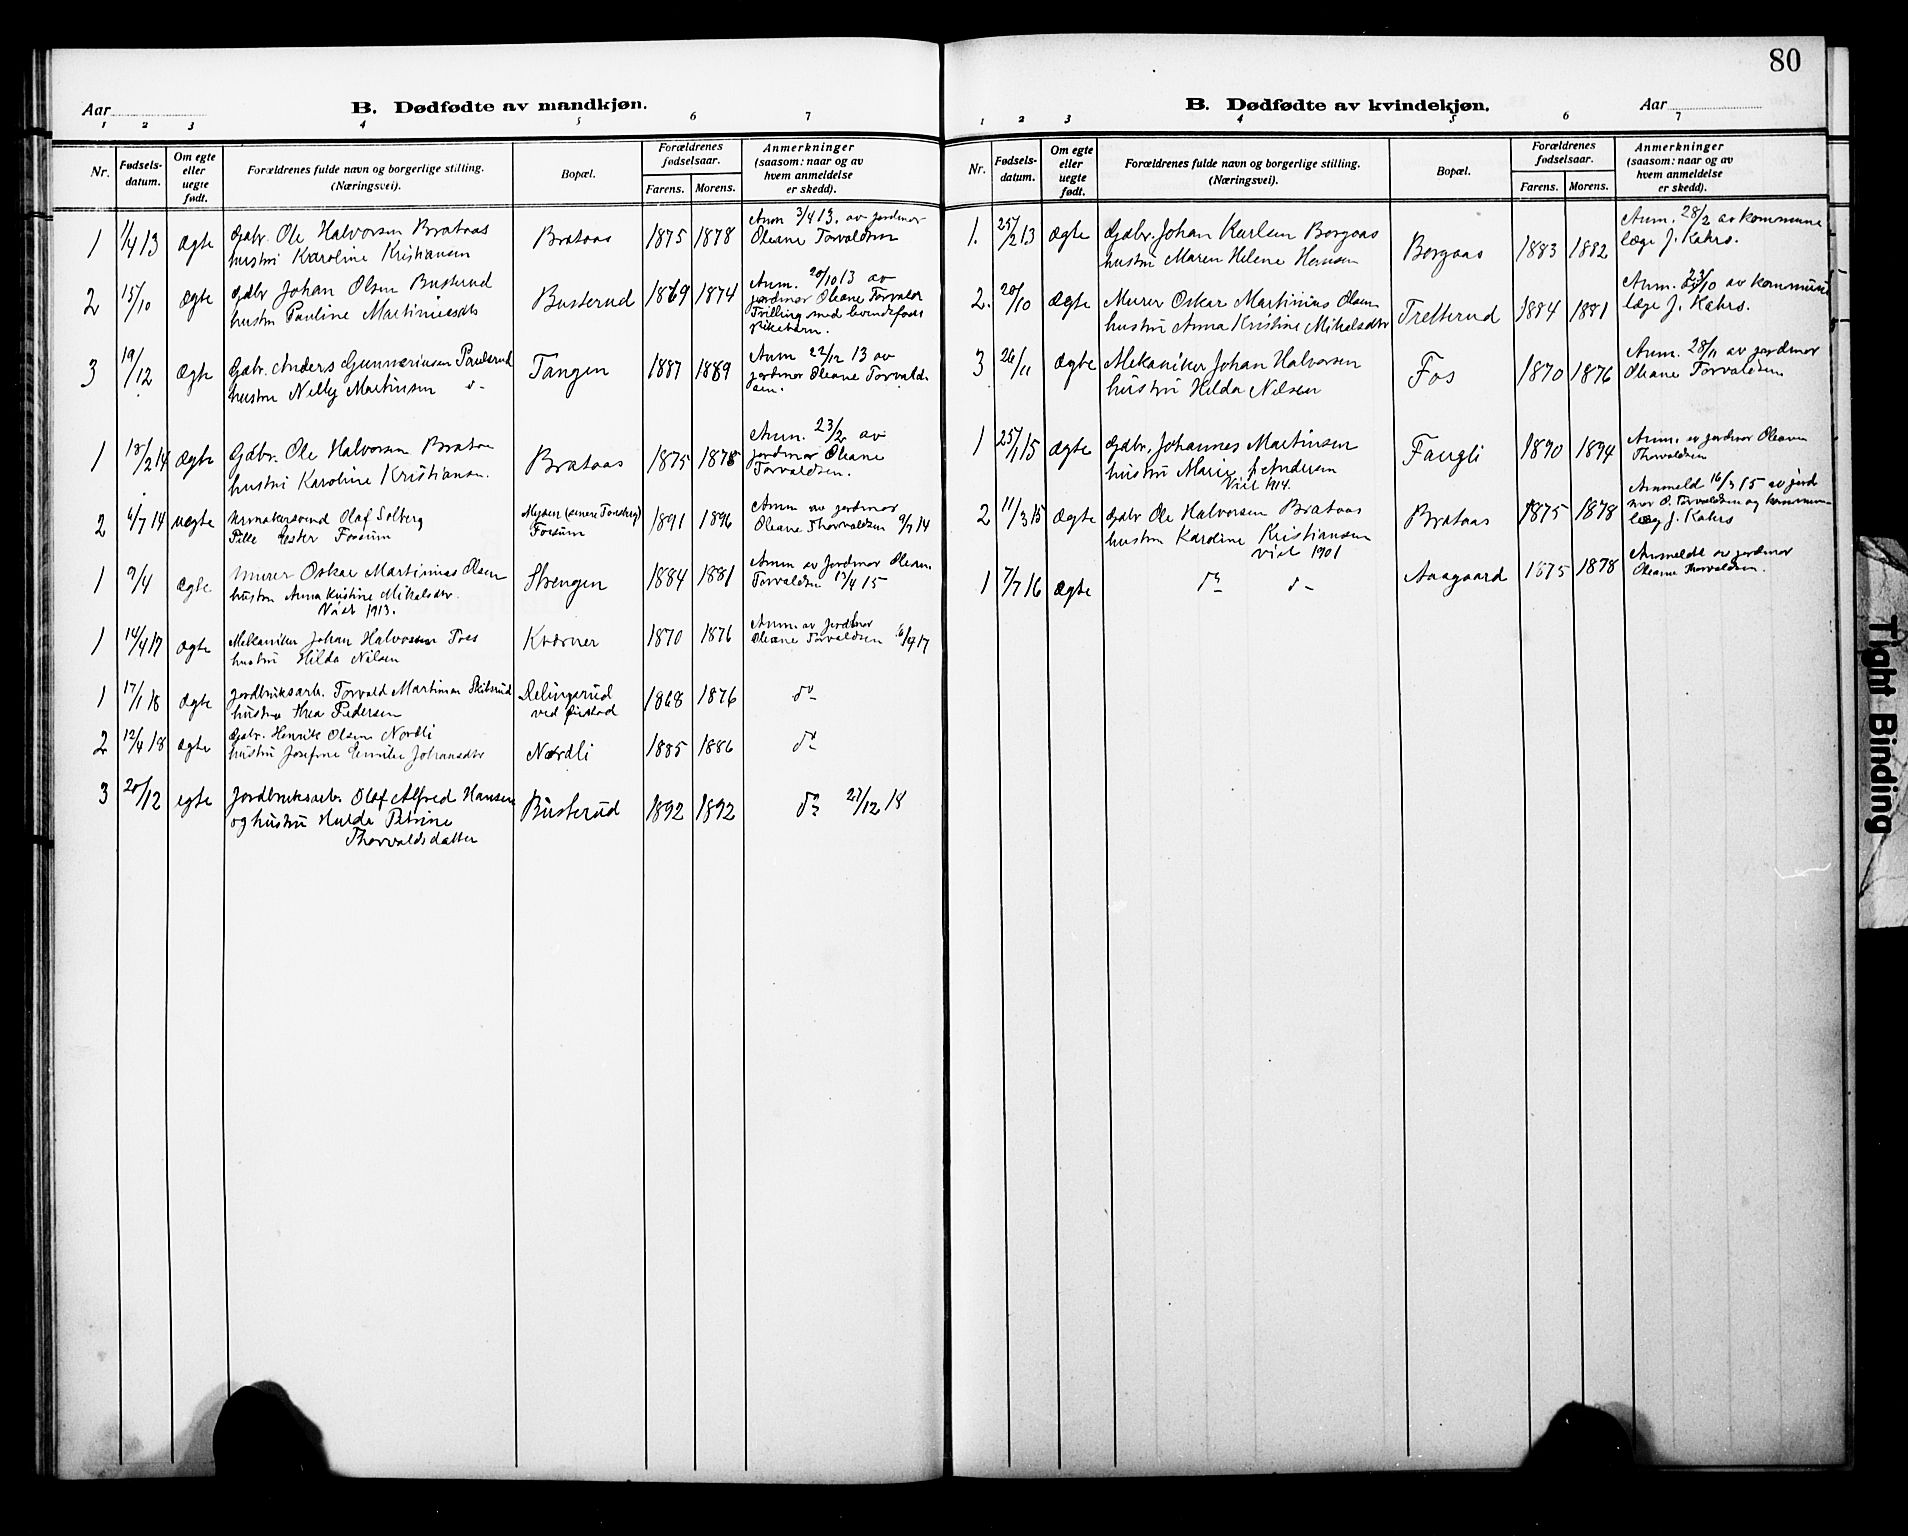 80
Aar
B. Dødfødte av mandkjøn.
1 2 3 4 5 6 7
Nr.
Fødsels-
datum.
Om egte
eller
uegte
født.
Forældrenes fulde navn og borgerlige stilling.
(Næringsvei).
Bopæl.
Forældrenes
fødselsaar.
Farens. Morens.
Anmerkninger
(saasom: naar og av
hvem anmeldelse
er skedd).
1 1/4 13 Ægte Gdbr. Ole Halvorsen Brataas Brataas 1875 1878 Anm 3/4 13. av jordmor
hustru Karoline Kristiansen Oleane Torvaldsen
2 15/10 Ægte Gdbr Johan Olsen Busterud Busterud 1869 1874 Anm. 20/10 13 av
hustru Pauline Martiniusdtr jordmor Oleane Torvalds
Trilling med levendefødt
pikebarn.
3 19/12 Ægte Gdbr. Anders Gunneriusen Paulsrud Tangen 1887 1889 Anm 22/12 13 av
hustru Nelly Martinsen jordmor Oleane Torvald-
sen.
1 18/2 14 Ægte Gdbr. Ole Halvorsen Brataas Brataas 1875 1878 Anm. 23/2 av
hustru Karoline Kristiansen. jordmor Oleane
Torvaldsen.
2 6/7 14 uegte Olaf Solberg Mysen 1891 1896 Anm av jordmor
Pike Ester Fossum Fossum Oleane Thorvaldsen 9/7 14
1 9/4 Ægte Murer Oskar Martinius Olsen Strengen 1884 1881 Anm av Jordmor Oleane
hustru Anna Kristine Mikalsdtr. Torvaldsen 15
Viet 1913.
1 14/4 17 Ægte Mekaniker Johan Halvorsen Foss Kværner 1870 1876 Anm. av jordmor
hustru Hilda Nilsen Oleane Torvaldsen 16/4 17
1 17/1 18 Ægte Jordbruksarb. Torvald Martinsen Skibsrud 1868 1876 do
hustru Thea Pedersen ved
2 12/4 18 Ægte Gdbr. Henrik Olsen Nordli Nordli 1885 1886 do
hustru Josefine Emilie Johansdtr
3 20/12 egte Jordbruksarb. Olaf Alfred Hansen Busterud 1892 1892 do 27/12 18
og hustru Hulda Petrine
Thorvaldsdatter
B. Dødfødte av kvindekjøn.
Aar
1 2 3 4 5 6 7
Nr.
Fødsels-
datum.
Om egte
eller
uegte
født.
Forældrenes fulde navn og borgerlige stilling.
(Næringsvei).
Bopæl.
Forældrenes
fødselsaar.
Farens. Morens.
Anmerkninger
(saasom: naar og av
hvem anmeldelse
er skedd).
1. 25/2 13 Ægte Gdbr. Johan Karlsen Borgaas Borgaas 1883 1882 Anm. 28/2 av kommune
hustru Maren Helene Hansen læge J. Kahrs.
2. 20/10 Ægte Murer Oskar Martinius Olsen Tretterud 1884 1881 Anm. 23/10 av kommune
hustru Anna Kristine Mikalsdtr læge J. Kahrs.
3 26/11 Ægte Mekaniker Johan Halvorsen Fos 1870 1876 Anm. 28/11 av jordmor
hustru Hilda Nilsen Oleane Torvaldsen
1 25/1 15 Ægte Gdbr. Johannes Martinsen Fangli 1890 1894 Anm. av jordmor Oleane
hustru Marie f. Andersen Thorvaldsen
Viet 1914.
2 11/3 15 Ægte Gdbr Ole Halvorsen Brataas Brataas 1875 1878 Anmeld 16/3 15 av jord
hustru Karoline Kristiansen mor O. Torvaldsen og kommune-
viet 1901 læge J. Kahrs
1 7/7 16 Ægte do do Aasgaard 1875 1878 Anmeldt av jordmor
Oleane Thorvaldsen.
Tight Binding